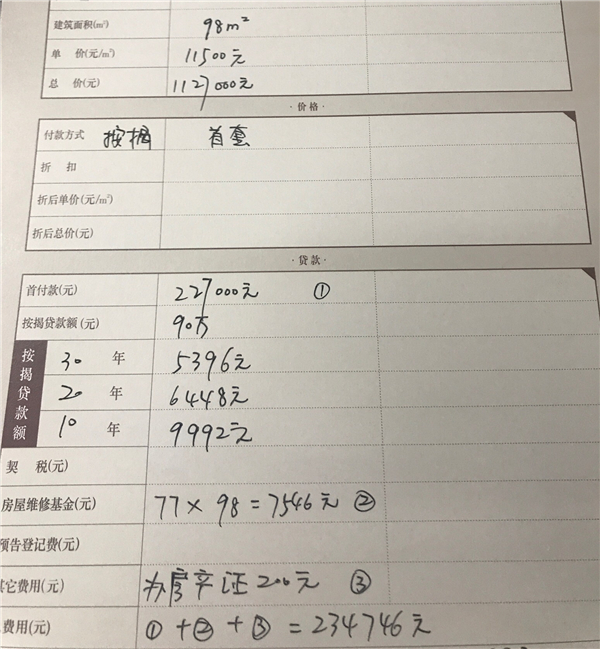 建筑面积(m²) 98m²
单 价(元/m²) 11500元
总 价(元) 1127000元
·价格·
付款方式 按揭 首套
折 扣
折后单价(元/m²)
折后总价(元)
·贷款·
首付款(元) 227000元 ①
按揭贷款额(元) 90万
按揭贷款额
30 年 5396元
20 年 6448元
10 年 9992元
契 税(元)
房屋维修基金(元) 77×98=7546元 ②
预告登记费(元)
其它费用(元) 办房产证200元 ③
费用(元) ①+②+③=234746元